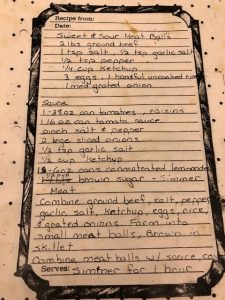 Recipe from:
Date:
Sweet & Sour Meat Balls
2 lbs ground beef
1 tsp salt, 1/2 tsp garlic salt
1/2 tsp pepper
1/4 cup Ketchup
3 eggs, 1 handful uncooked rice
1 med grated onion
Sauce
1-28oz can tomatoes, raisins
1 16oz can tomato sauce
pinch salt & pepper
2 large sliced onions
1/2 tsp garlic salt
1/2 cup Ketchup
1 6oz cans concentrated lemonade
brown sugar - Simmer
Meat
Combine ground beef, salt, pepper
garlic salt, Ketchup, eggs, rice,
& grated onions. Form into
small meat balls, Brown in
skillet
Combine meat balls w/ sauce,
Serves: Simmer for 1 hour